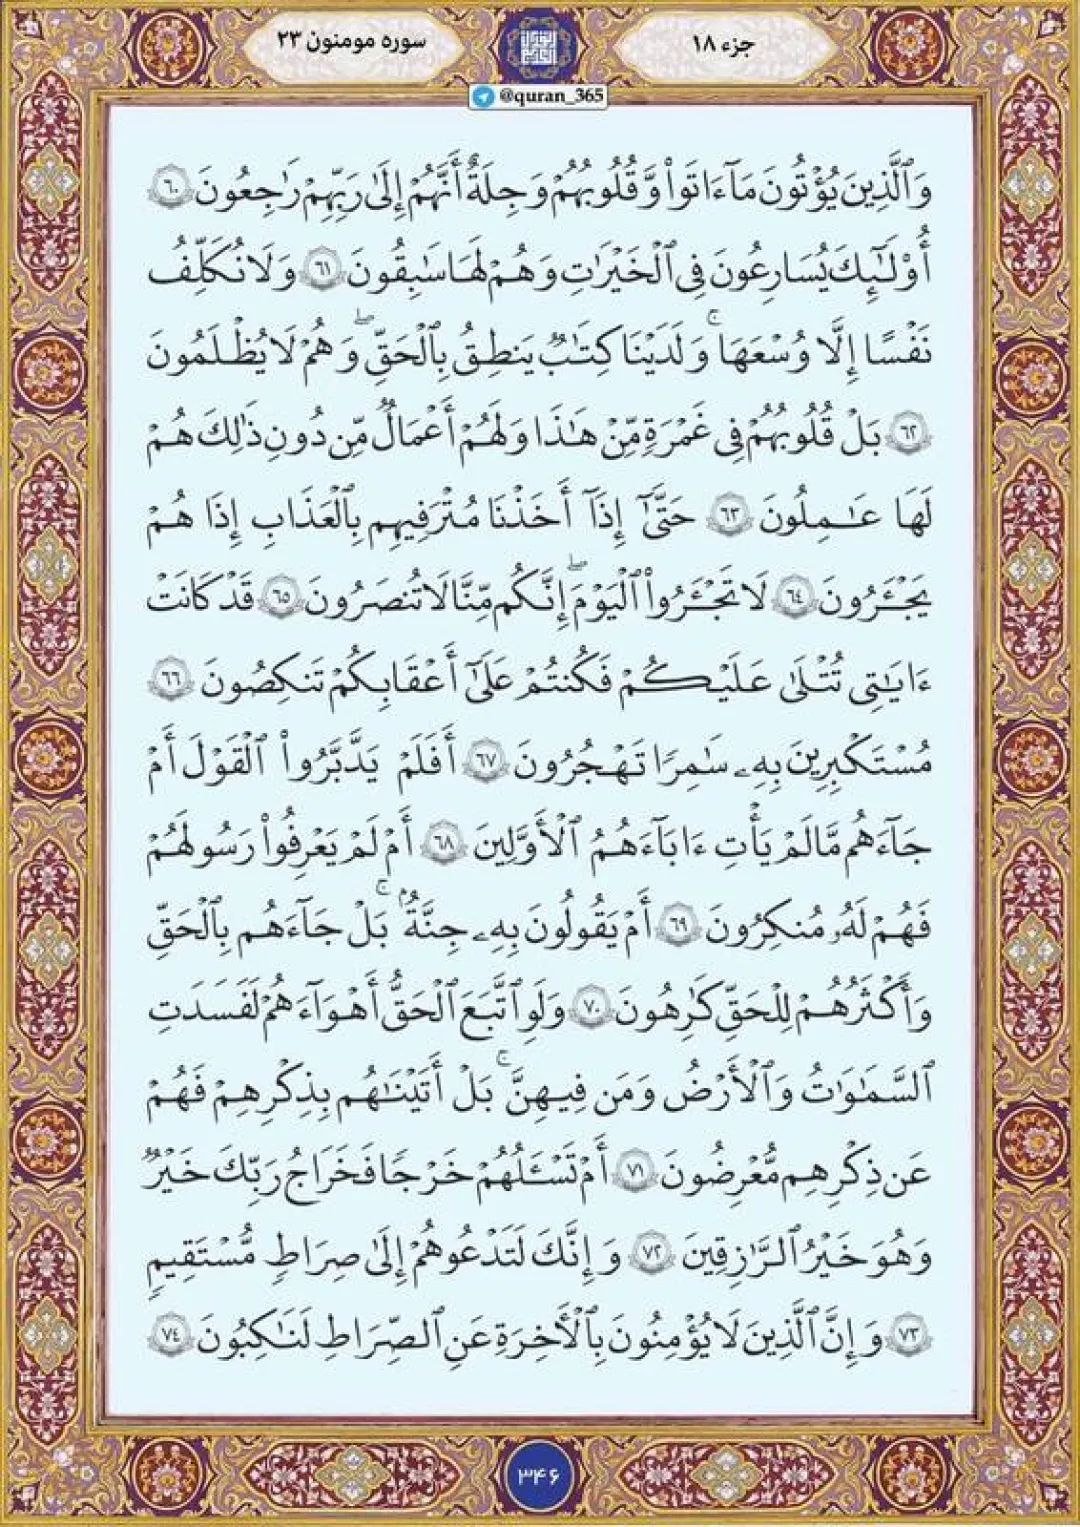 جزء ۱۸
سوره مومنون ۲۳
@quran_365
وَٱلَّذِينَ يُؤْتُونَ مَآ ءَاتَوا۟ وَّقُلُوبُهُمْ وَجِلَةٌ أَنَّهُمْ إِلَىٰ رَبِّهِمْ رَٰجِعُونَ ۶۰
أُو۟لَـٰٓئِكَ يُسَارِعُونَ فِى ٱلْخَيْرَٰتِ وَهُمْ لَهَا سَـٰبِقُونَ ۶۱ وَلَا نُكَلِّفُ
نَفْسًا إِلَّا وُسْعَهَا ۚ وَلَدَيْنَا كِتَـٰبٌ يَنطِقُ بِٱلْحَقِّ ۖ وَهُمْ لَا يُظْلَمُونَ
۶۲ بَلْ قُلُوبُهُمْ فِى غَمْرَةٍ مِّنْ هَـٰذَا وَلَهُمْ أَعْمَـٰلٌ مِّن دُونِ ذَٰلِكَ هُمْ
لَهَا عَـٰمِلُونَ ۶۳ حَتَّىٰٓ إِذَآ أَخَذْنَا مُتْرَفِيهِم بِٱلْعَذَابِ إِذَا هُمْ
يَجْـَٔرُونَ ۶۴ لَا تَجْـَٔرُوا۟ ٱلْيَوْمَ ۖ إِنَّكُم مِّنَّا لَا تُنصَرُونَ ۶۵ قَدْ كَانَتْ
ءَايَـٰتِى تُتْلَىٰ عَلَيْكُمْ فَكُنتُمْ عَلَىٰٓ أَعْقَـٰبِكُمْ تَنكِصُونَ ۶۶
مُسْتَكْبِرِينَ بِهِۦ سَـٰمِرًا تَهْجُرُونَ ۶۷ أَفَلَمْ يَدَّبَّرُوا۟ ٱلْقَوْلَ أَمْ
جَآءَهُم مَّا لَمْ يَأْتِ ءَابَآءَهُمُ ٱلْأَوَّلِينَ ۶۸ أَمْ لَمْ يَعْرِفُوا۟ رَسُولَهُمْ
فَهُمْ لَهُۥ مُنكِرُونَ ۶۹ أَمْ يَقُولُونَ بِهِۦ جِنَّةٌۢ ۚ بَلْ جَآءَهُم بِٱلْحَقِّ
وَأَكْثَرُهُمْ لِلْحَقِّ كَـٰرِهُونَ ۷۰ وَلَوِ ٱتَّبَعَ ٱلْحَقُّ أَهْوَآءَهُمْ لَفَسَدَتِ
ٱلسَّمَـٰوَٰتُ وَٱلْأَرْضُ وَمَن فِيهِنَّ ۚ بَلْ أَتَيْنَـٰهُم بِذِكْرِهِمْ فَهُمْ
عَن ذِكْرِهِم مُّعْرِضُونَ ۷۱ أَمْ تَسْـَٔلُهُمْ خَرْجًا فَخَرَاجُ رَبِّكَ خَيْرٌ
وَهُوَ خَيْرُ ٱلرَّٰزِقِينَ ۷۲ وَإِنَّكَ لَتَدْعُوهُمْ إِلَىٰ صِرَٰطٍ مُّسْتَقِيمٍ
۷۳ وَإِنَّ ٱلَّذِينَ لَا يُؤْمِنُونَ بِٱلْأَخِرَةِ عَنِ ٱلصِّرَٰطِ لَنَـٰكِبُونَ ۷۴
۳۴۶